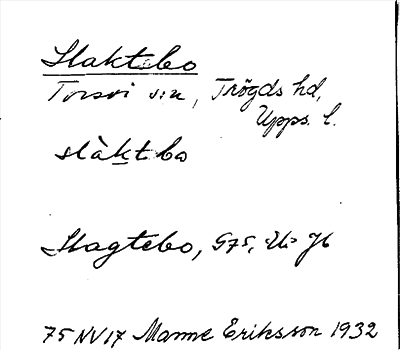 Slaktebo
Torsvi sn, Trögds hd,
Upps. l.
slàktebo
Slagtebo,
75 NV17 Manne Eriksson 1932